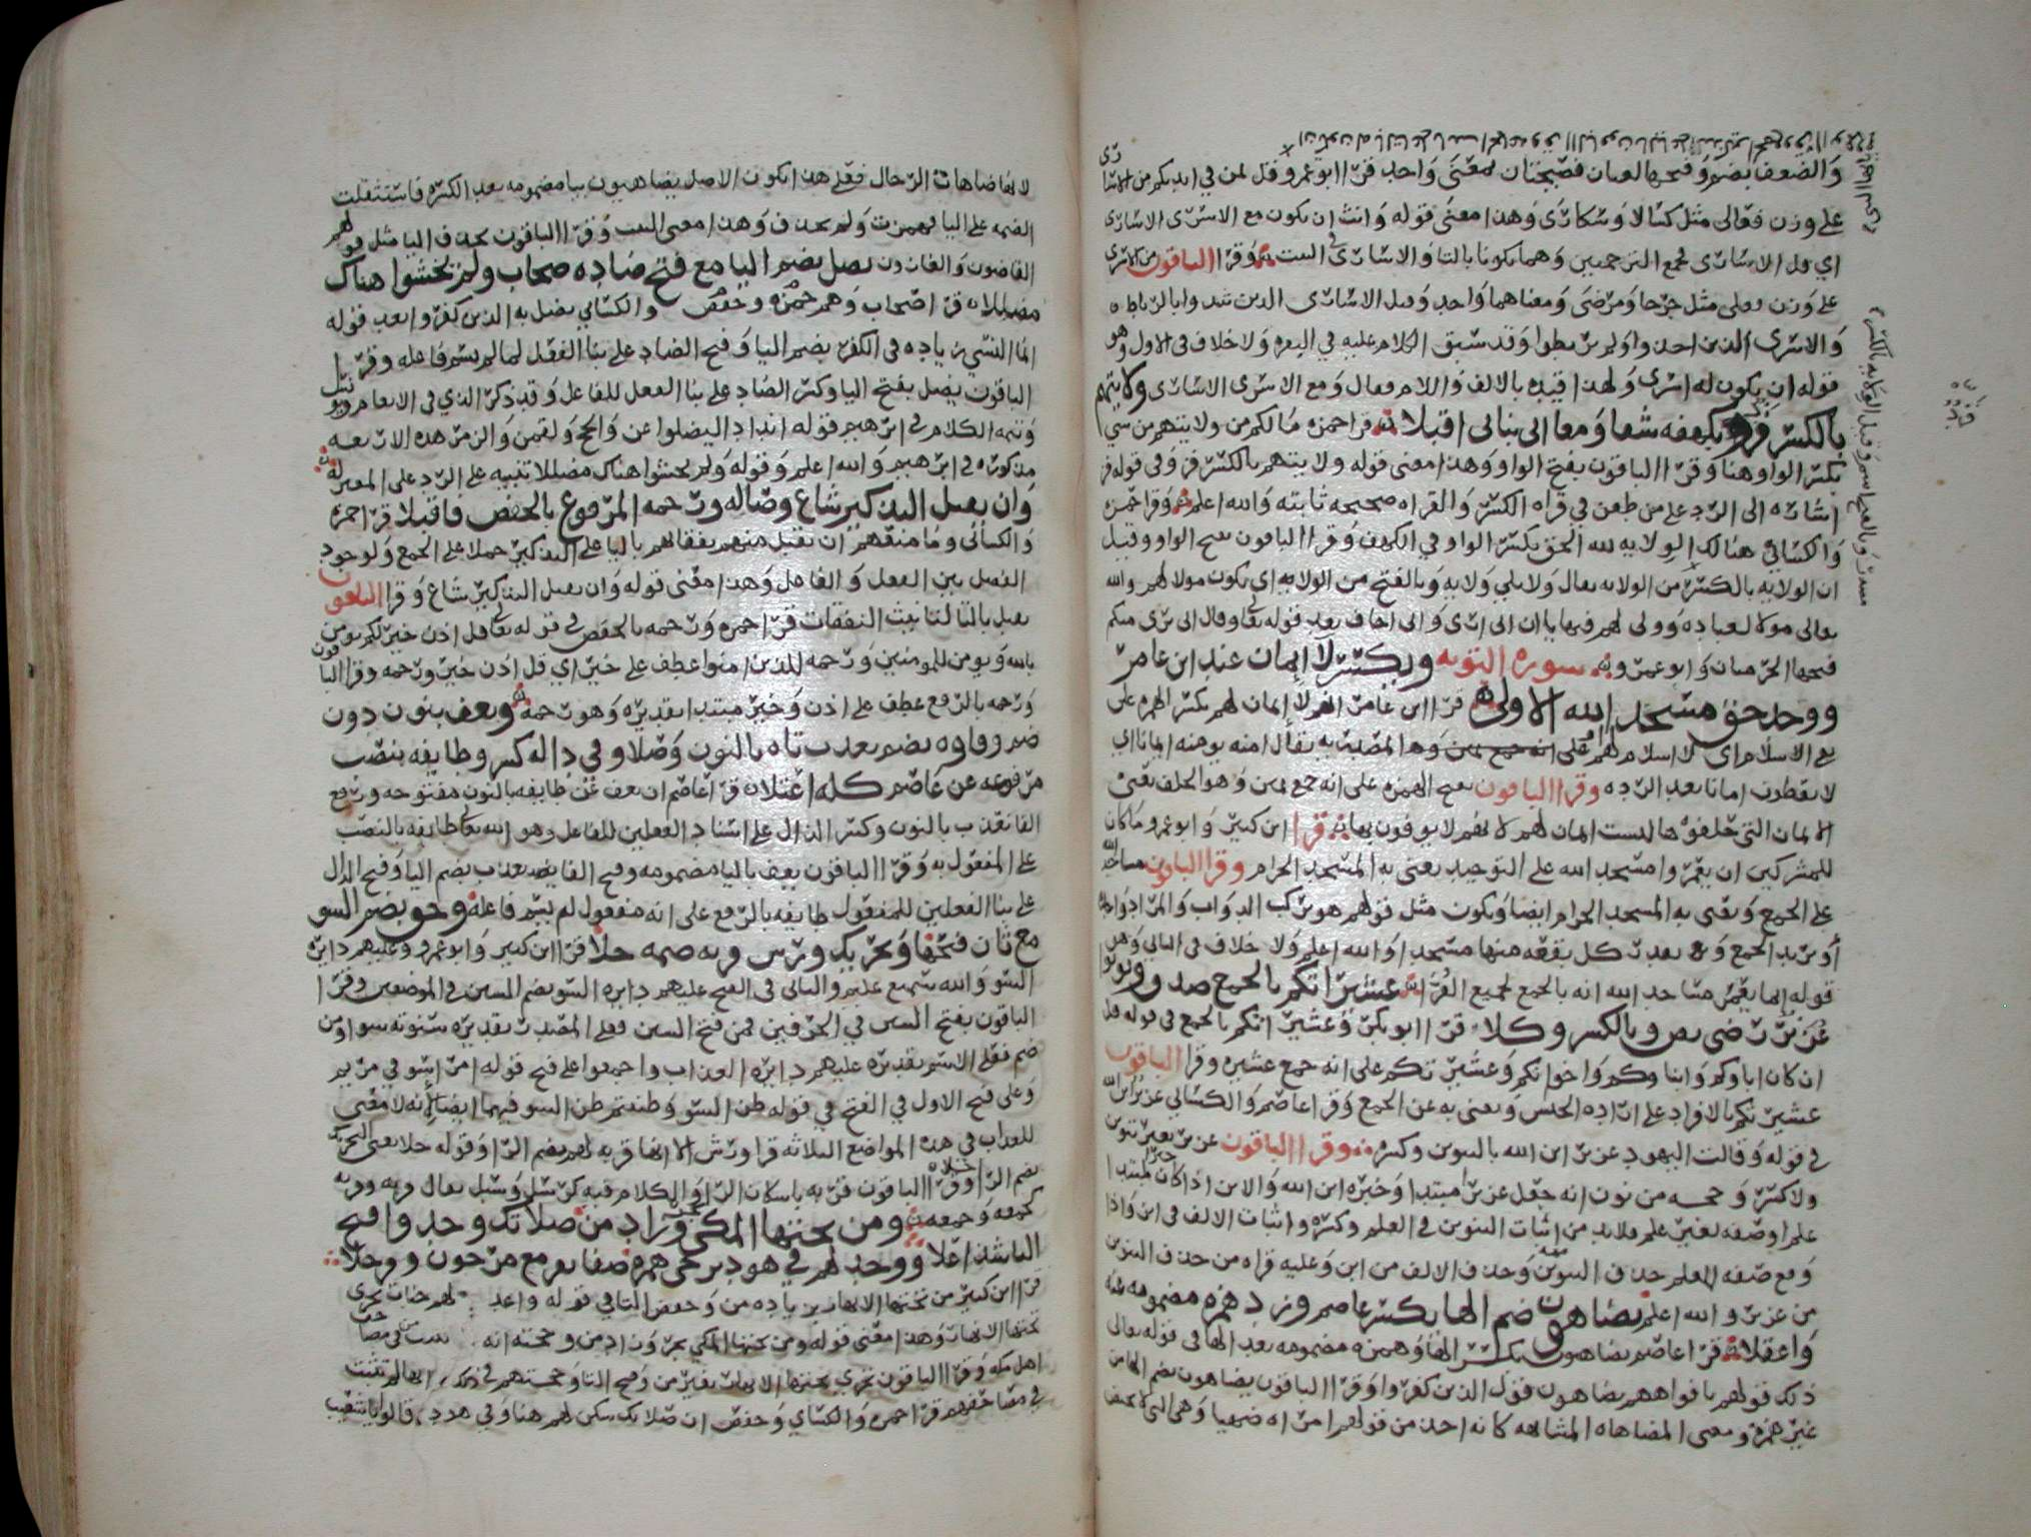 والضعف بضم وفتحها لغتان فصيحتان بمعنى واحد قرا ابو عمرو قل لمن في ايديكم من الاسارى
على وزن فعالى مثل كسالا وسكارى وهذا معنى قوله وانث ان يكون مع الاسرى الاسارى
وقرا الباقون من الاسرى
على وزن فعلى مثل جرحا ومرضى ومعناهما واحد وقيل الاسارى الذين شدوا بالرباط
والاسرى الذين اخذوا ولم يربطوا وقد سبق الكلام عليه في البقرة ولا خلاف في الاول وهو
قوله ان يكون له اسرى ولهذا قيده بالالف واللام فقال ومع الاسرى الاسارى ولايتهم
بالكسر فز وبكهفه شفا ومعا اني بيائي اقبلا قرا حمزة مالكم من ولايتهم من شي
بكسر الواو هنا وقرا الباقون بفتح الواو وهذا معنى قوله ولايتهم بالكسر فز وفي قوله فز
اشارة الى الرد على من طعن في قراة الكسر والقراة صحيحة ثابتة والله اعلم وقرا حمزة
والكسائي هنالك الولاية لله الحق بكسر الواو في الكهف وقرا الباقون بفتح الواو وقيل
ان الولاية بالكسر من الولاية يقال ولا يلي ولاية وبالفتح من الولاية اي يكون مولا لهم والله
تعالى مولا لعباده وولي لهم فيها ياان اني ارى واني اخاف بعد قوله تعا وقال اني برى منكم
فتحها الحرميان وابو عمرو سورة التوبة ويكسر لا ايمان عند ابن عامر
ووحد حق مسجد الله الاولى قرا ابن عامر انهم لا ايمان لهم بكسر الهمزة على
لا يعطون امانا بعد الردة وقرا الباقون بفتح الهمزة على انه جمع يمين وهو الحلف يعني
الايمان التي حلفوها ليست ايمان لهم لانهم لا يوفون بها قرا ابن كثير وابو عمرو ما كان
للمشركين ان يعمروا مسجد الله على التوحيد يعنى به المسجد الحرام وقرا الباقون مساجد
على الجمع ويعنى به المسجد الحرام ايضا ويكون مثل قولهم هو يركب الدواب
قوله انما يعمر مساجد الله انه بالجمع لجميع القرا عشيراتكم بالجمع صدق ونونوا
عزير رضى نص وبالكسر وكلا قرا ابو بكر وعشيراتكم بالجمع في قوله قل
ان كان اباوكم وابناوكم واخوانكم وعشيراتكم على انه جمع عشيرة وقرا الباقون
عشيرتكم بالافراد على ارادة الجنس ويعنى به عن الجمع وقرا عاصم والكسائي عزير ابن الله
في قوله وقالت اليهود عزير ابن الله بالتنوين وكسره وقرا الباقون عزير بغير تنوين
ولا كسر وحجة من نون انه جعل عزير مبتدا وخبره ابن الله والابن اذا كان خبرا مبتدا
ومع صفة العلم حذف التنوين وحذف الالف من ابن وعليه قراة من حذف التنوين
من عزير والله اعلم يضاهون ضم الها بكسر عاصم وزد همزة مضمومة عنه
واعقلا قرا عاصم يضاهون بكسر الها وهمزة مضمومة بعد الها في قوله تعالى
ذلك قولهم بافواههم يضاهون قول الذين كفروا وقرا الباقون يضاهون بضم الها من
غير همزة ومعنى المضاهاة المشابهة كانه اخذ من قولهم امراة ضهيا وهي التي لا تحيض
الضمة على اليا فهمزت ولم تحذف وهذا معنى البيت وقرا الباقون بحذف اليا مثل قولهم
القاضون والغازون يضل بضم اليا مع فتح ضاده صحاب ولم يخشوا هناك
مضللا قرا صحاب وهم حمزة وحفص والكسائي يضل به الذين كفروا بعد قوله
انما النسي زيادة في الكفر بضم اليا وفتح الضاد على بنا الفعل لما لم يسم فاعله وقرا
الباقون يضل بفتح اليا وكسر الضاد على بنا الفعل للفاعل وقد ذكر الذي في الانعام ويونس
وتتمة الكلام في ابرهيم قوله اندادا ليضلوا عن والحج ولقمن والزمر هذه الاربعة
مذكورة في ابرهيم والله اعلم وقوله ولم يخشوا هناك مضللا تنبيه على الرد على المعتزلة
وان يقبل التذكير شاع وصاله ورحمة المرفوع بالخفض فاقبلا قرا حمزة
والكسائي وما منعهم ان تقبل منهم نفقاتهم باليا على التذكير حملا على الجمع ولوجود
الفصل بين الفعل والفاعل وهذا معنى قوله وان يقبل التذكير شاع وقرا الباقون
تقبل بالتا لتانيث النفقات قرا حمزة ورحمة بالخفض في قوله تعا قل اذن خير لكم يومن
بالله ويومن للمومنين ورحمة للذين امنوا عطف على خير اي قل اذن خير ورحمة وقرا الباقون
ورحمة بالرفع عطف على اذن وخبر مبتدا تقديره وهو رحمة ويعف بنون دون
ضم وفاوه بضم تعذب تاه بالنون وصلا وفي ذاله كسر وطايفة بنصب
مرفوعه عن عاصم كله اعتلا قرا عاصم ان نعف عن طايفة بالنون مفتوحة ورفع
الفا نعذب بالنون وكسر الذال على اسناد الفعلين للفاعل وهو الله تعا طايفة بالنصب
على المفعول به وقرا الباقون يعف باليا مضمومة وفتح الفا تعذب بضم التا وفتح الذال
على بنا الفعلين للمفعول طايفة بالرفع على انه مفعول لم يسم فاعله وحق بضم السو
مع ثان فتحها وتحريك ورش قربة ضمه جلا قرا ابن كثير وابو عمرو عليهم دايرة
السو والله سميع عليم والثاني في الفتح عليهم دايرة السو بضم السين في الموضعين وقرا
الباقون بفتح السين في الحرفين فمن فتح السين فعلى المصدر تقديره سوته سوا ومن
ضم فعلى الاسم تقديره عليهم دايرة العذاب واجمعوا على فتح قوله امرا سو في مريم
وعلى فتح الاول في الفتح في قوله ظن السو وظننتم ظن السو فيهما ايضا لانه لا معنى
للعذاب في هذه المواضع الثلاثة قرا ورش الا انها قربة لهم بضم الرا وقوله جلا يعني التحريك
بضم الرا وقرا الباقون قربة باسكان الرا
ومن تحتها المكي يجر وزاد من صلاتك وحد وافتح
التا شذا علا ووحد لهم في هود ترجى همزه صفا نفر مع مرجون وقد حلا
قرا ابن كثير من تحتها الانهار بزيادة من وخفض التا في قوله واعد لهم جنات تجري
تحتها الانهار وهذا معنى قوله ومن تحتها المكي يجر وزاد من وحجته انه
اهل مكة وقرا الباقون تجري تحتها الانهار بغير من وفتح التا وحجتهم في ذلك انها لم تثبت
في مصاحفهم قرا حمزة والكسائي وحفص ان صلاتك سكن لهم هنا وفي هود قالوا يا شعيب